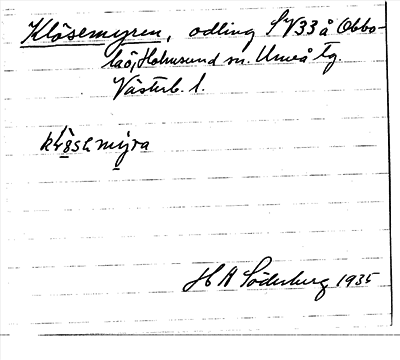 Klösemyren, odling SV33 å Obbo-
laö, Holmsund sn. Umeå tg.
Västerb. l.
H A Söderberg 1935